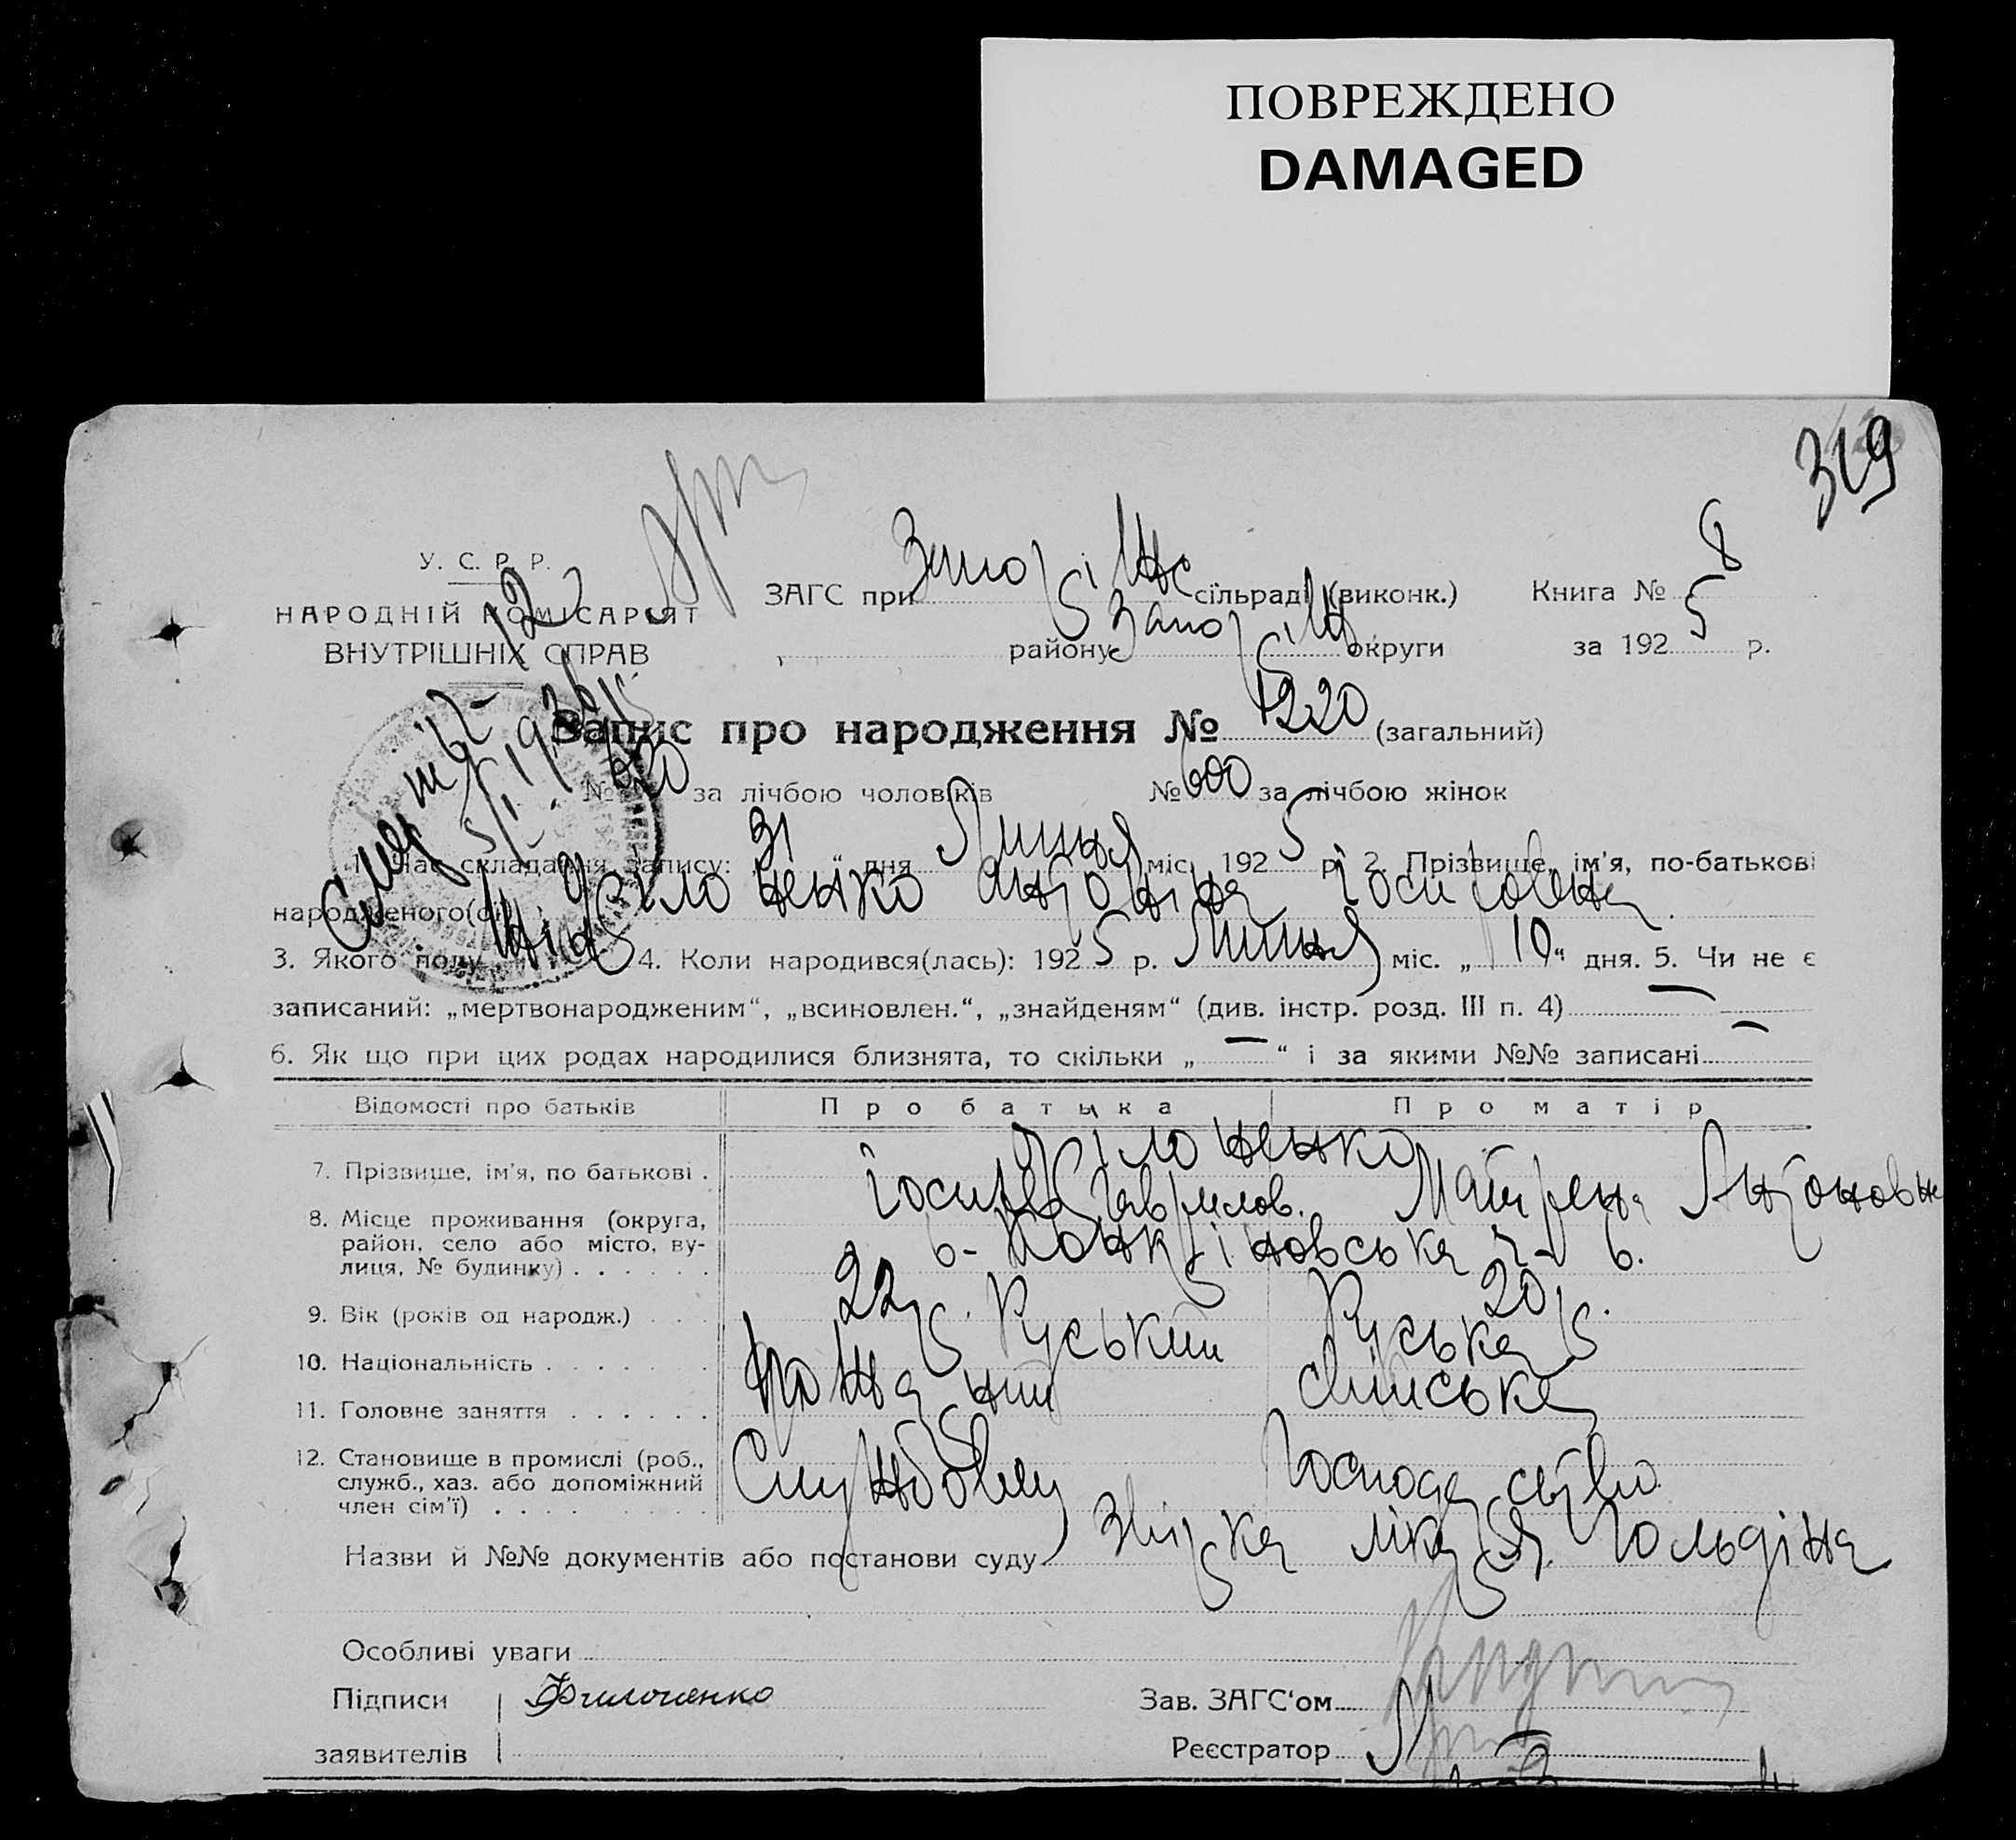 ПОВРЕЖДЕНО
DAMAGED
319
У. С. Р. Р.
НАРОДНІЙ КОМІСАРІЯТ
ВНУТРІШНІХ СПРАВ
ЗАГС при Запоріж сільраді (виконк.) Книга № 8
району Запоріж округи за 1925 р.
Запис про народження № 1220 (загальний)
№ 620 за лічбою чоловіків № 600 за лічбою жінок
1. Час складання запису: „31“ дня Липня міс. 1925 р. 2. Прізвище, ім'я, по-батькові
народженого(ої) Філоненко Антоніна Іосиповна
3. Якого полу Жіноч 4. Коли народився(лась): 1925 р. Липня міс. „10“ дня. 5. Чи не є
записаний: „мертвонародженим“, „всиновлен.“, „знайденям“ (див. інстр. розд. III п. 4) —
6. Як що при цих родах народилися близнята, то скільки „—“ і за якими №№ записані —
Відомості про батьків Про батька Про матір
7. Прізвище, ім'я, по батькові . Філоненко
Іосип Гаврилов. Мотрена Антоновна
8. Місце проживання (округа,
район, село або місто, ву-
лиця, № будинку) . . . . . .
9. Вік (років од народж.) . . . 22 р. 20 р.
10. Національність . . . . . . . Руський Руська
11. Головне заняття . . . . . . хатське
12. Становище в промислі (роб.,
служб., хаз. або допоміжний
член сім'ї) . . . . Службовец Господарство
Назви й №№ документів або постанови суду лікаря Гольдіна
Особливі уваги
Підписи Филоненко Зав. ЗАГС'ом
заявителів Реєстратор